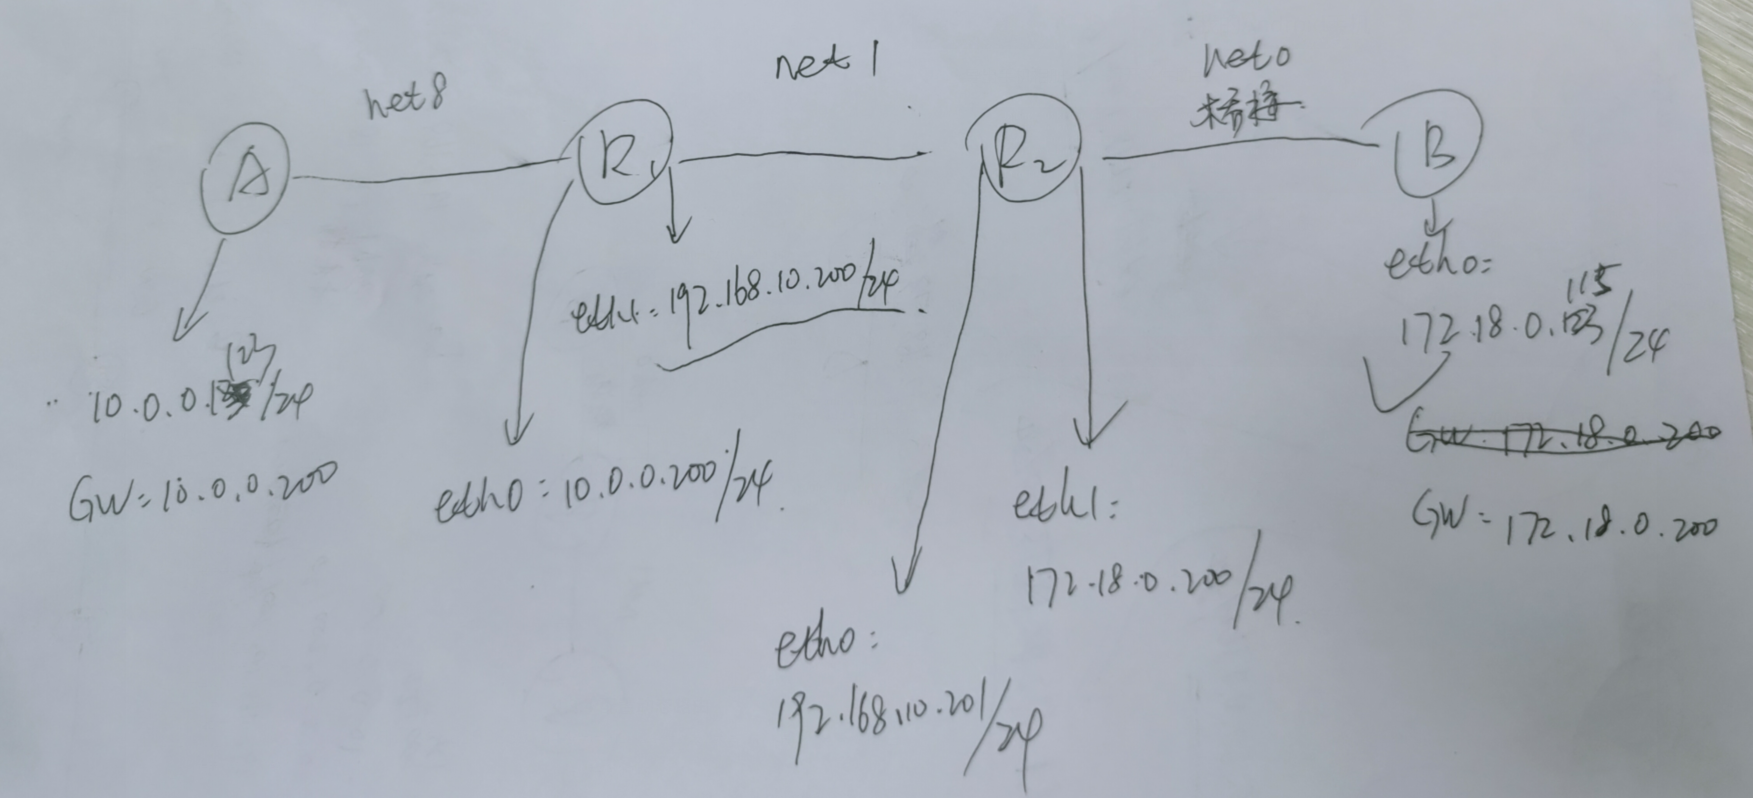 net8
net1
net0
桥接
A
R1
R2
B
eth1=192.168.10.200/24
eth0=
172.18.0.115/24
10.0.0.123/24
GW=10.0.0.200
eth0=10.0.0.200/24
eth1:
172.18.0.200/24
GW=172.18.0.200
GW=172.18.0.200
eth0:
192.168.10.201/24